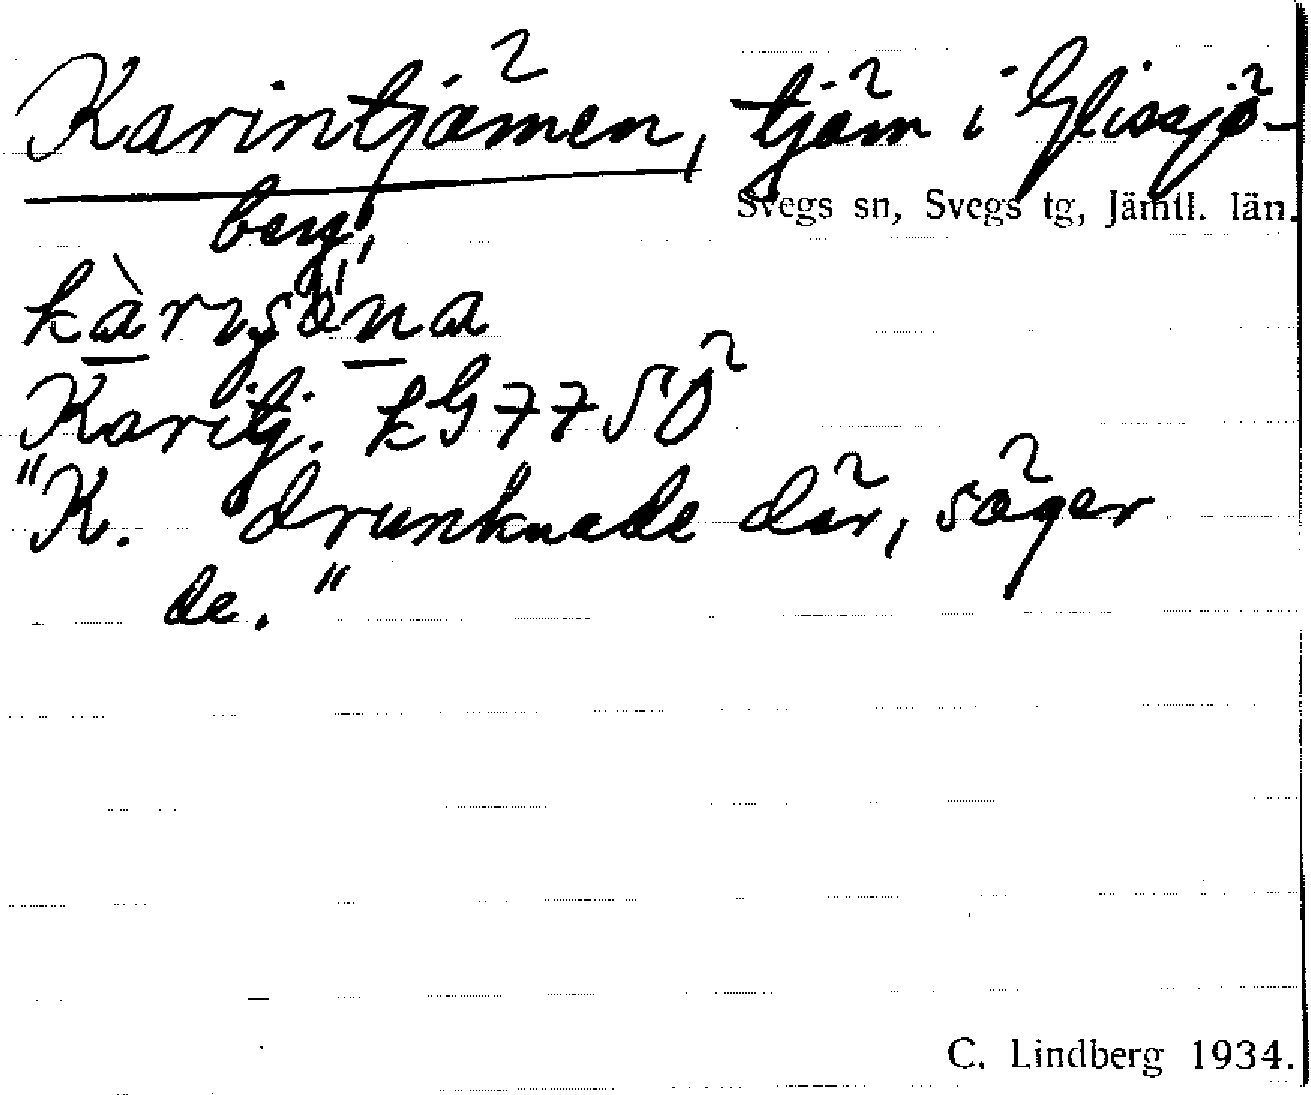 Karintjämen, tjäm i Glissjö-
berg,
Svegs sn, Svegs tg, Jämtl. län.
Karitj. kG 77 SÖ
"K. drunknade där, säger
de."
C. Lindberg 1934.